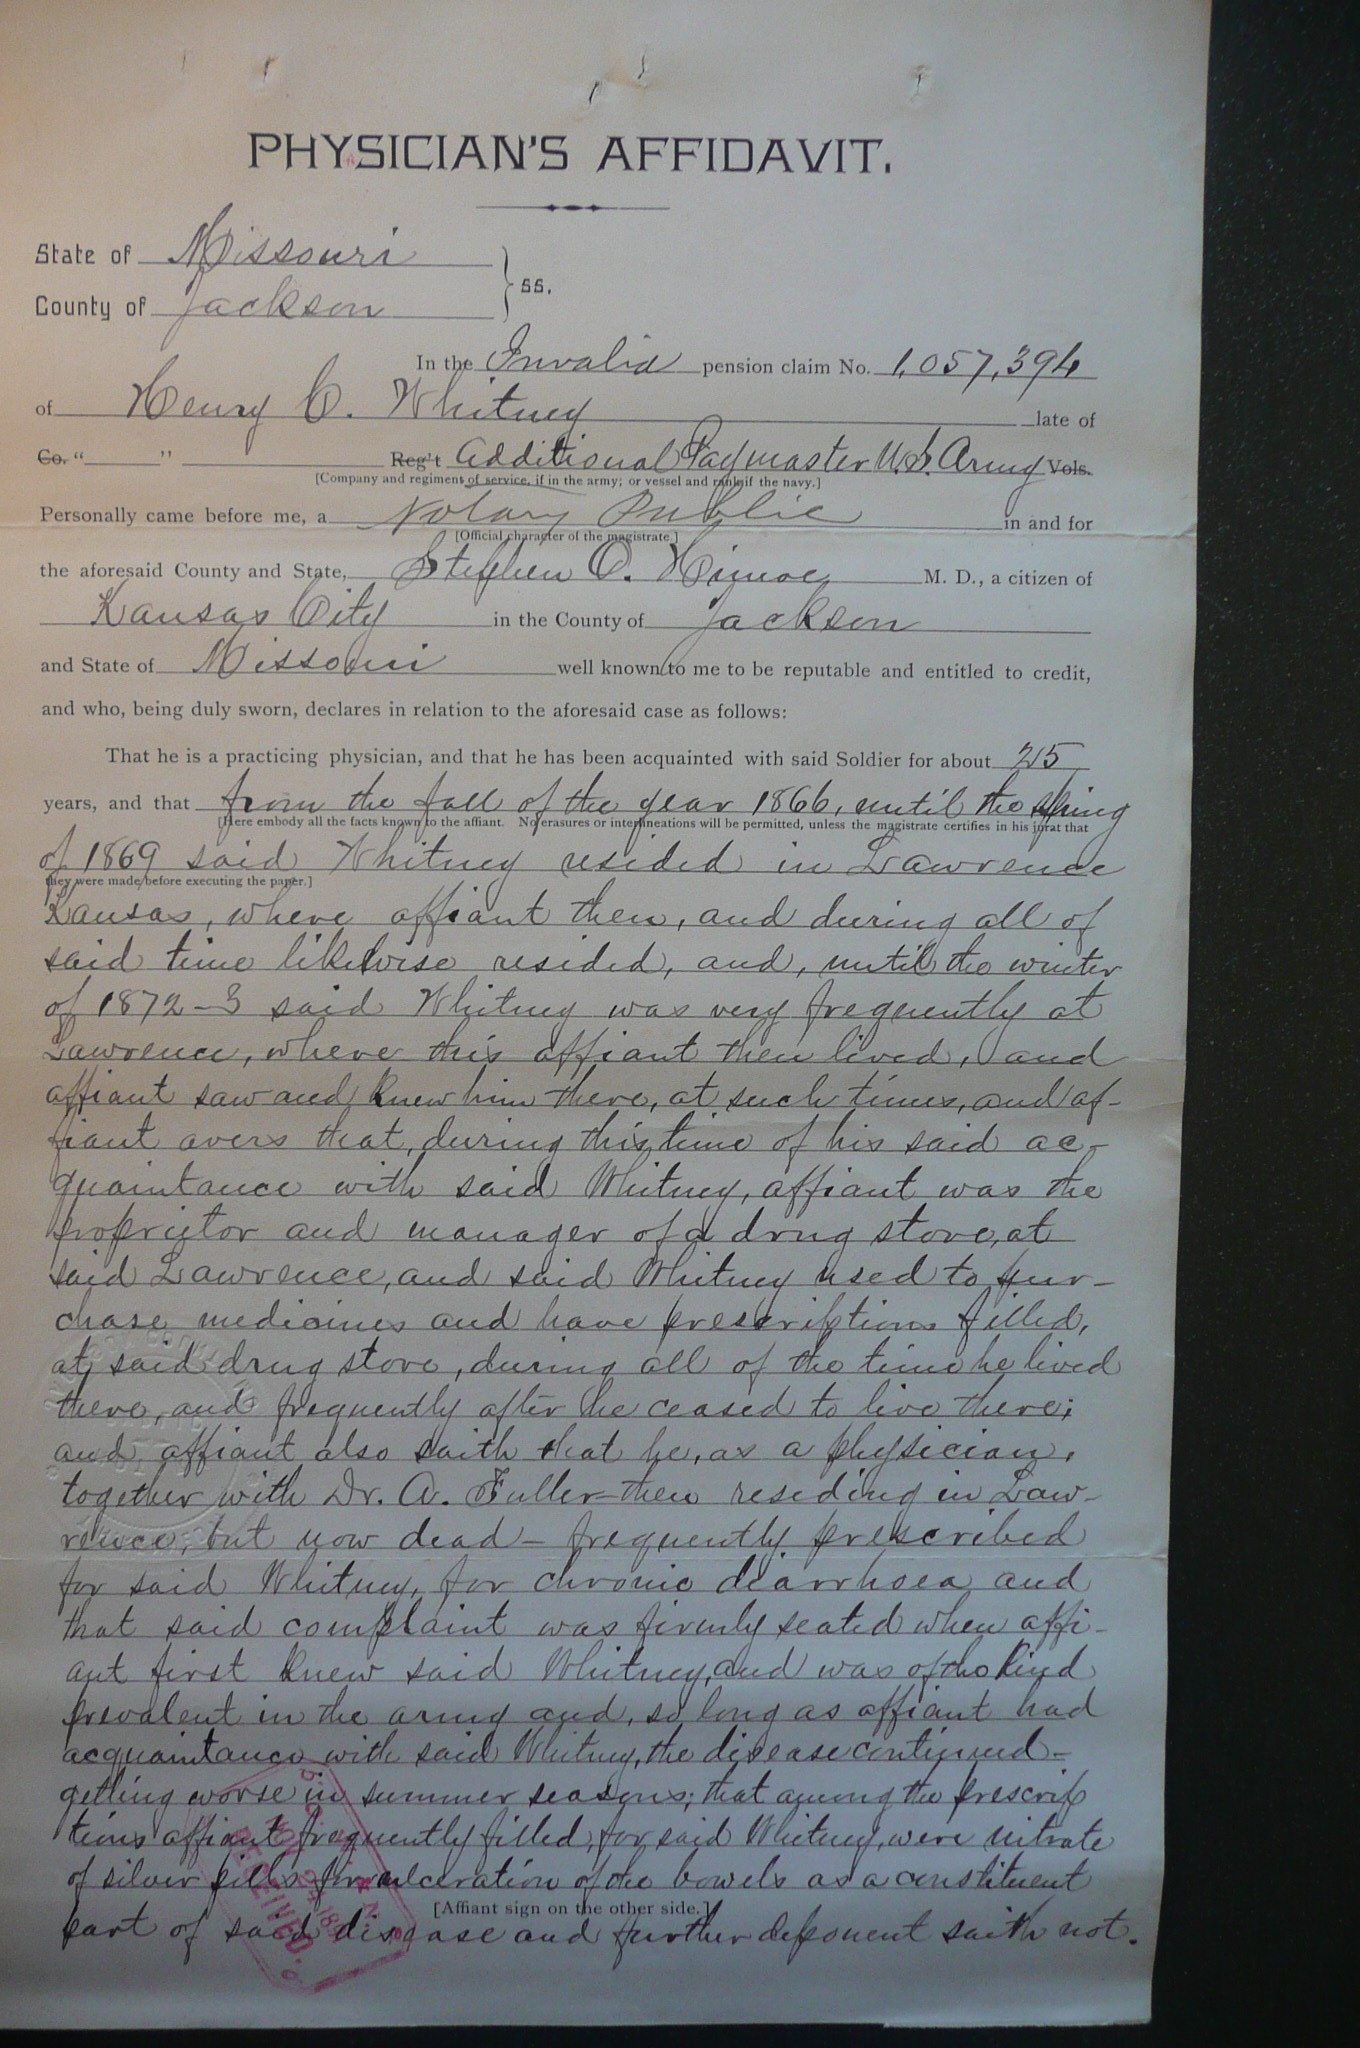 PHYSICIAN'S AFFIDAVIT.
State of Missouri
County of Jackson } ss.
In the Invalid pension claim No. 1,057,394
of Henry C. Whitney late of
Co. " " Reg't Additional Paymaster U.S. Army Vols.
[Company and regiment of service, if in the army; or vessel and rank if the navy.]
Personally came before me, a Notary Public in and for
[Official character of the magistrate.]
the aforesaid County and State, Stephen O. Himoe M. D., a citizen of
Kansas City in the County of Jackson
and State of Missouri well known to me to be reputable and entitled to credit,
and who, being duly sworn, declares in relation to the aforesaid case as follows:
That he is a practicing physician, and that he has been acquainted with said Soldier for about 25
years, and that from the fall of the year 1866, until the spring
[Here embody all the facts known to the affiant. No erasures or interlineations will be permitted, unless the magistrate certifies in his jurat that
of 1869 said Whitney resided in Lawrence
they were made before executing the paper.]
Kansas, where affiant then, and during all of
said time likewise resided, and, until the winter
of 1872-3 said Whitney was very frequently at
Lawrence, where this affiant then lived, and
affiant saw and knew him there, at such times, and af-
fiant avers that, during this time of his said ac-
quaintance with said Whitney, affiant was the
proprietor and manager of a drug store, at
said Lawrence, and said Whitney used to pur-
chase medicines and have prescriptions filled,
at said drug store, during all of the time he lived
there, and frequently after he ceased to live there;
and affiant also saith that he, as a physician,
together with Dr. A. Fuller-then residing in Law-
rence, but now dead - frequently prescribed
for said Whitney, for chronic diarrhoea and
that said complaint was firmly seated when affi-
ant first knew said Whitney, and was of the kind
prevalent in the army and, so long as affiant had
acquaintance with said Whitney, the disease continued-
getting worse in summer seasons; that among the prescrip
tions affiant frequently filled, for said Whitney, were nitrate
of silver pills for ulceration of the bowels as a constituent
[Affiant sign on the other side.]
part of said disease and further deponent saith not.
RECEIVED